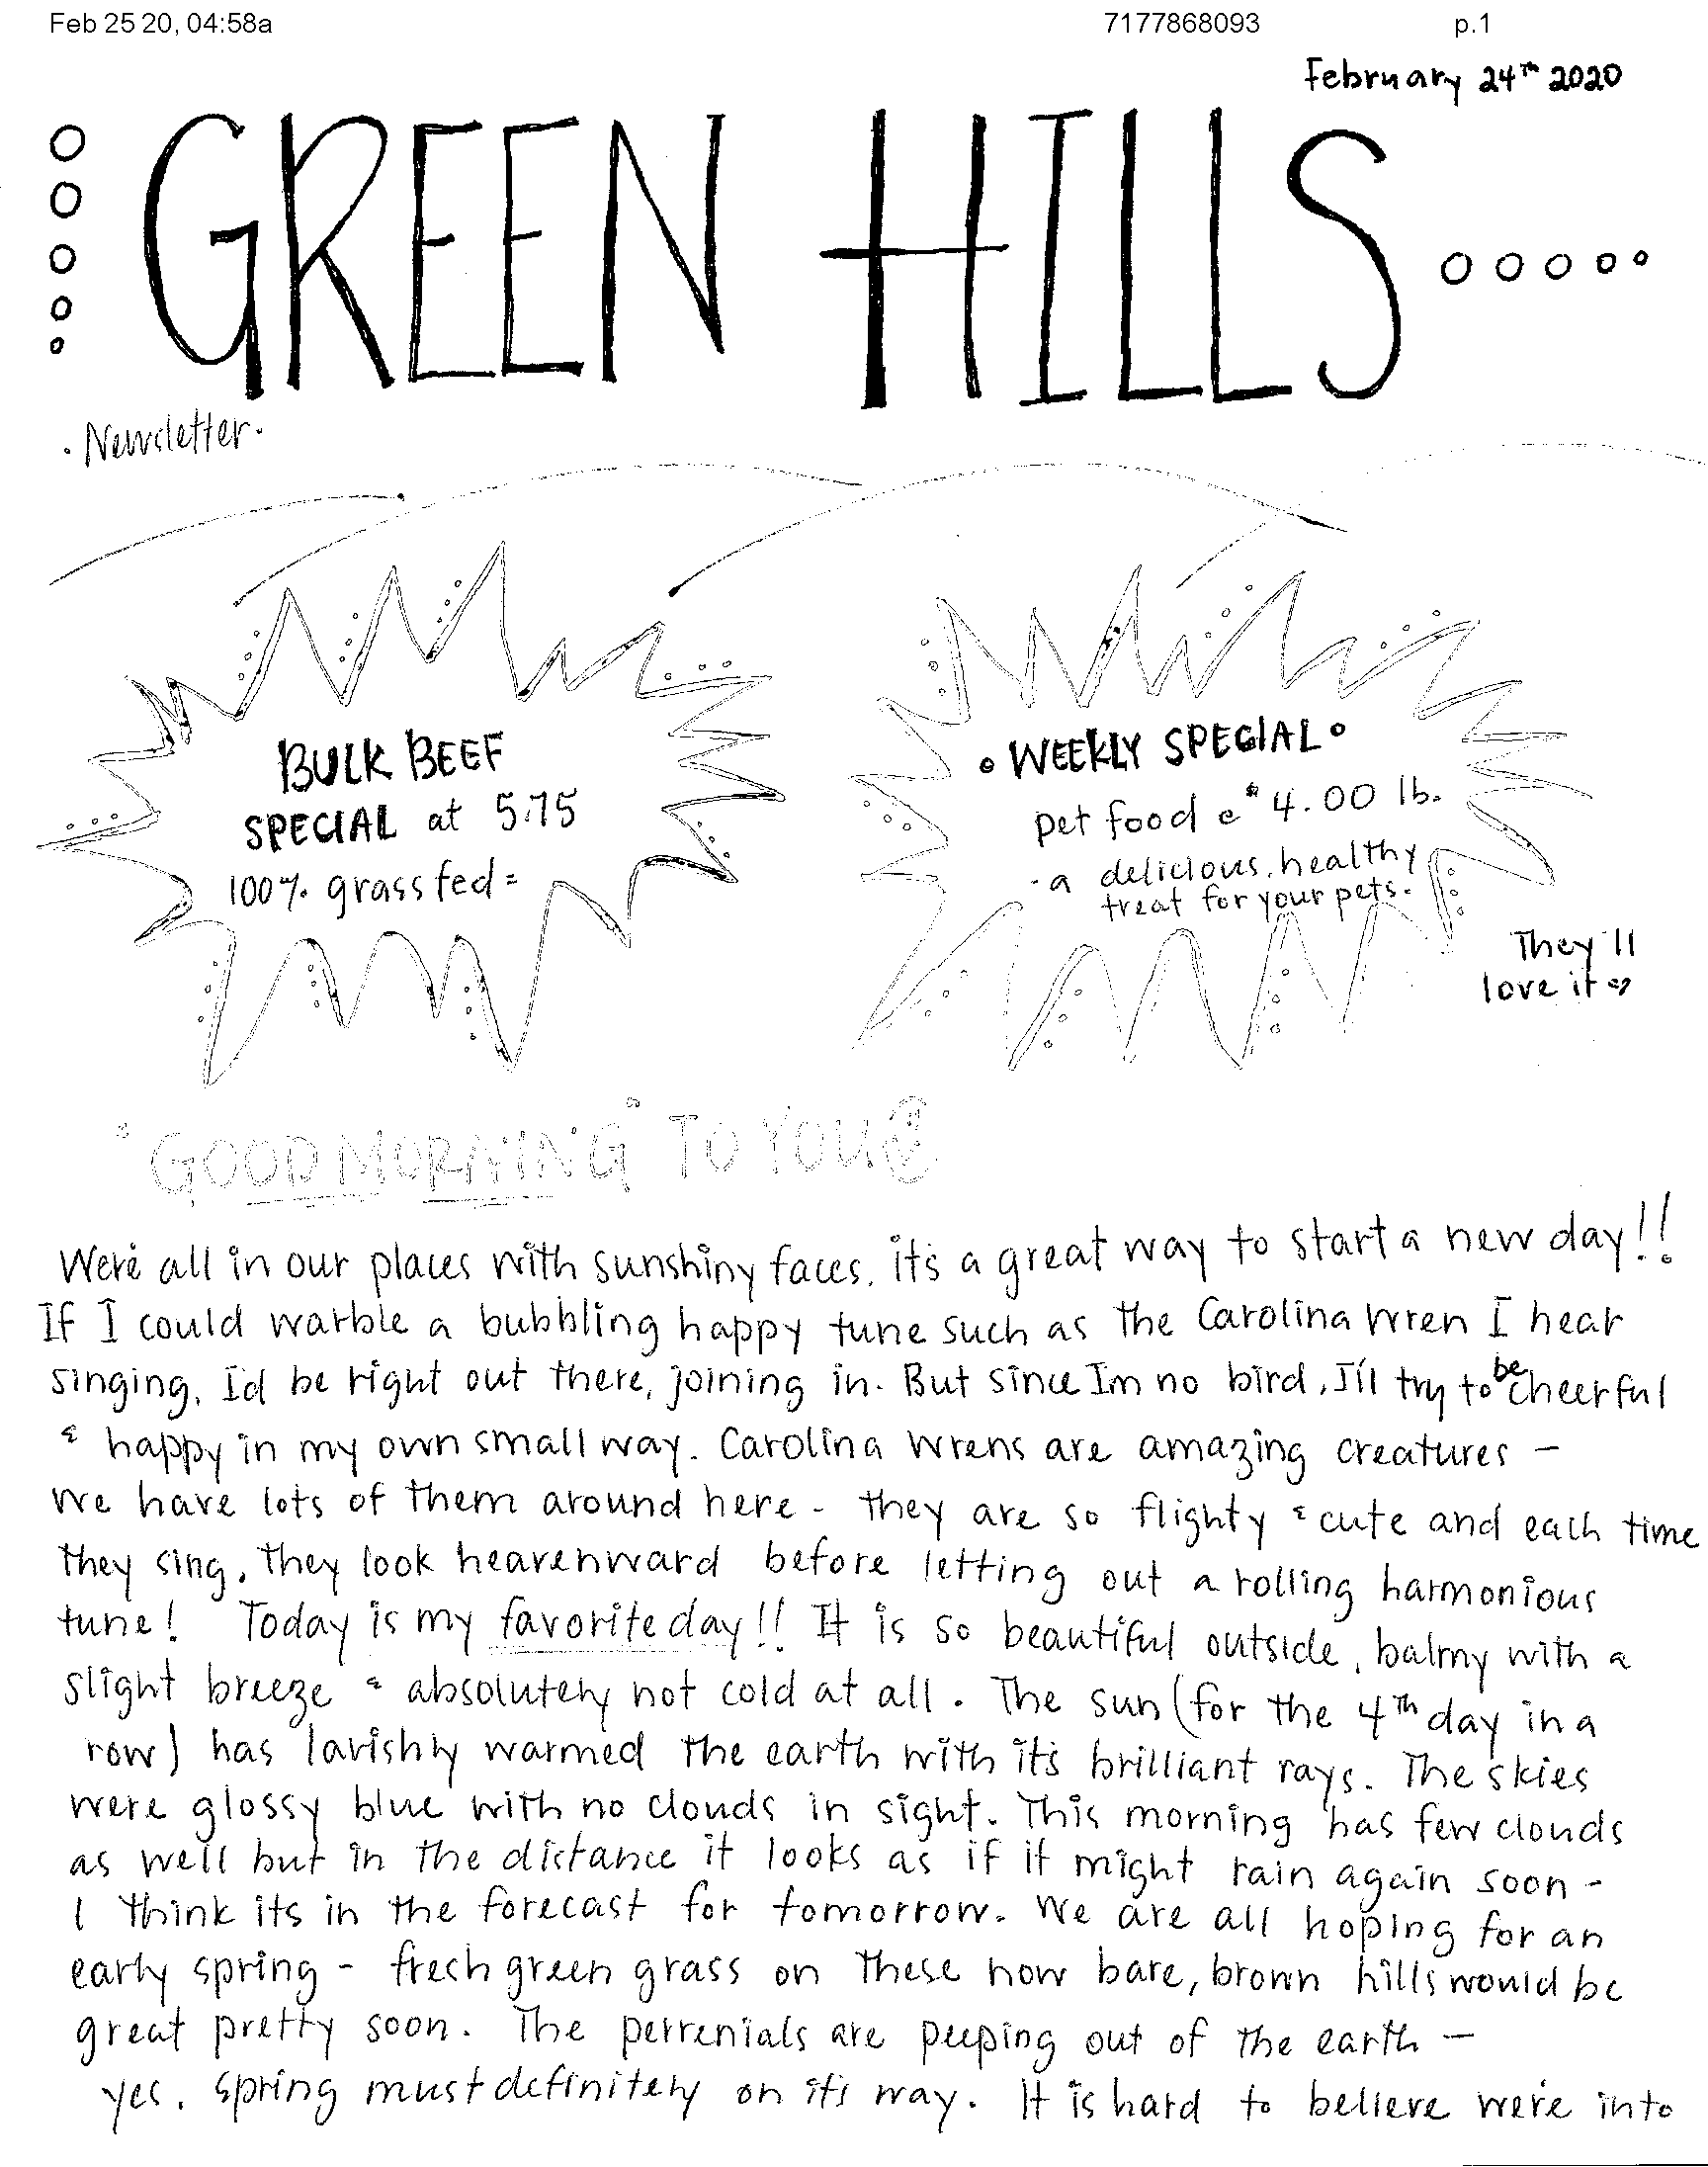 Feb 25 20, 04:58a 7177868093 p.1
February 24th 2020
GREEN HILLS
. Newsletter.
BULK BEEF
SPECIAL at 5.75
100% grass fed =
WEEKLY SPECIAL
pet food @ $4.00 lb.
- a delicious, healthy
treat for your pets.
They'll
love it
"GOOD MORNING" TO YOU
We're all in our places with sunshiny faces, it's a great way to start a new day!!
If I could warble a bubbling happy tune such as the Carolina Wren I hear
singing, I'd be right out there, joining in. But since I'm no bird, I'll try to be cheerful
& happy in my own small way. Carolina wrens are amazing creatures -
we have lots of them around here - they are so flighty & cute and each time
they sing, they look heavenward before letting out a rolling harmonious
tune! Today is my favorite day!! It is so beautiful outside, balmy with a
slight breeze & absolutely not cold at all. The sun (for the 4th day in a
row) has lavishly warmed the earth with it's brilliant rays. The skies
were glossy blue with no clouds in sight. This morning has few clouds
as well but in the distance it looks as if it might rain again soon -
I think its in the forecast for tomorrow. We are all hoping for an
early spring - fresh green grass on these now bare, brown hills would be
great pretty soon. The perrenials are peeping out of the earth -
yes, spring must definitely on it's way. It is hard to believe we're into